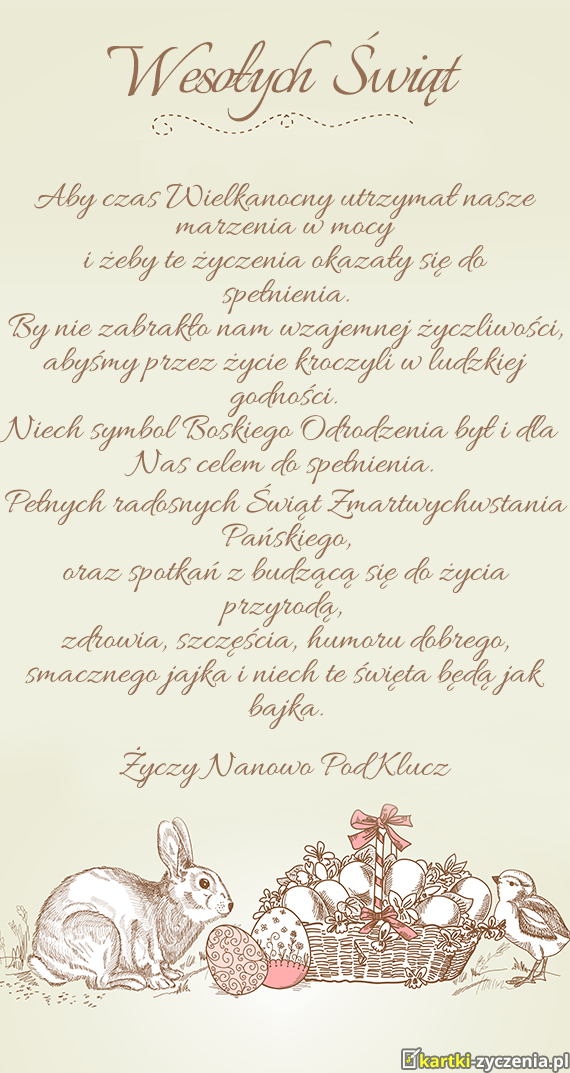 Wesołych Świąt
Aby czas Wielkanocny utrzymał nasze
marzenia w mocy
i żeby te życzenia okazały się do
spełnienia.
By nie zabrakło nam wzajemnej życzliwości,
abyśmy przez życie kroczyli w ludzkiej
godności.
Niech symbol Boskiego Odrodzenia był i dla
Nas celem do spełnienia.
Pełnych radosnych Świąt Zmartwychwstania
Pańskiego,
oraz spotkań z budzącą się do życia
przyrodą,
zdrowia, szczęścia, humoru dobrego,
smacznego jajka i niech te święta będą jak
bajka.
Życzy Nanowo PodKlucz
kartki-zyczenia.pl